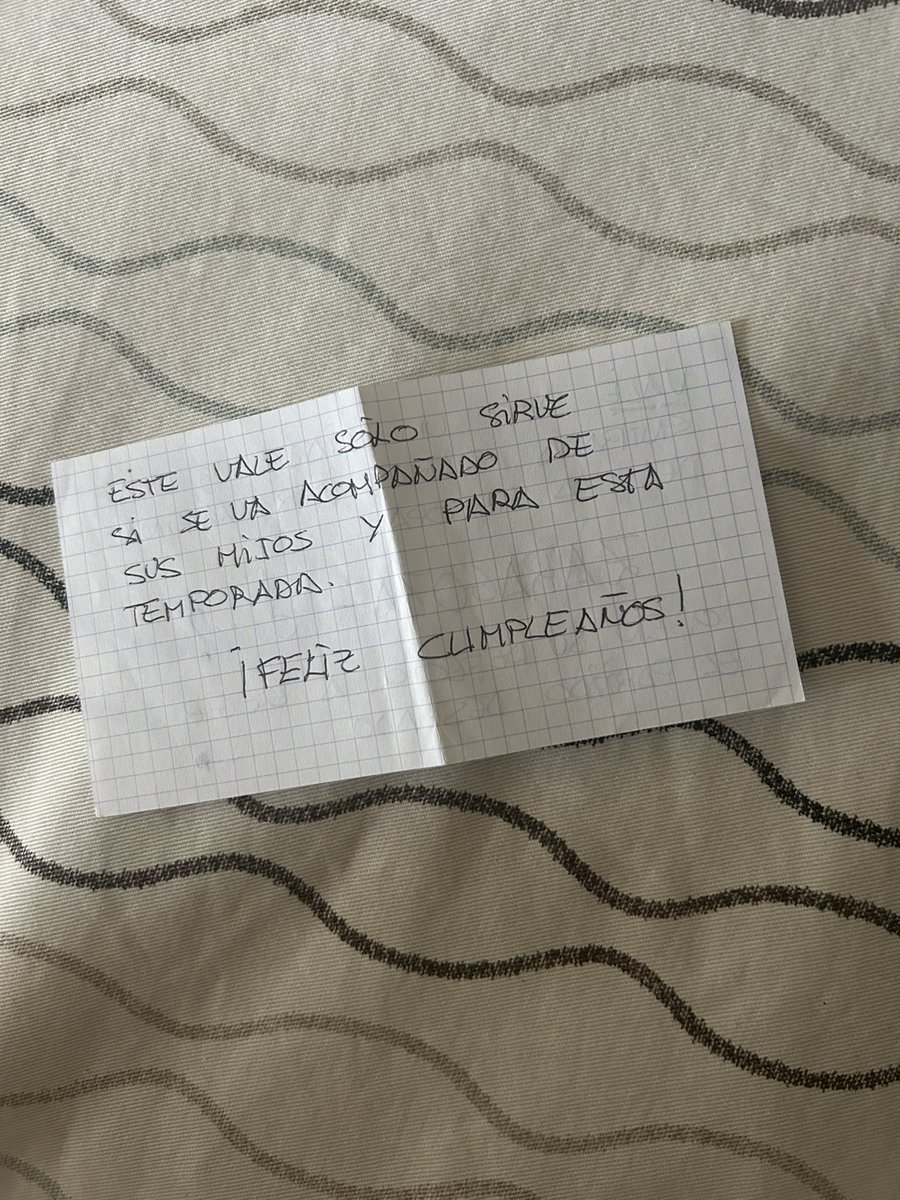 ESTE VALE SÓLO SIRVE
SI SE VA ACOMPAÑADO DE
SUS MIJOS Y PARA ESTA
TEMPORADA.
¡FELIZ CUMPLEAÑOS!